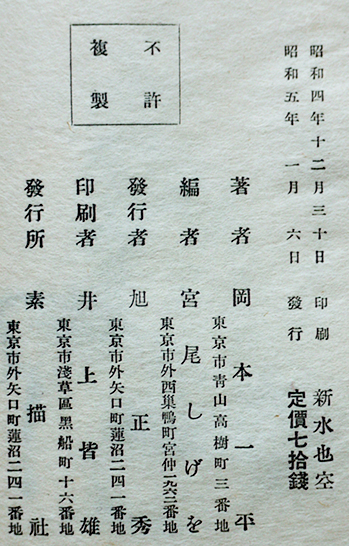 不許
複製
昭和四年十二月三十日 印刷 新水也空
昭和五年一月六日 發行 定價七拾錢
著者 岡本一平
東京市青山高樹町三番地
編者 宮尾しげを
東京市外西巢鴨町宮仲一九六二番地
發行者 旭正秀
東京市外矢口町蓮沼二四一番地
印刷者 井上皆雄
東京市淺草區黑船町十六番地
發行所 素描社
東京市外矢口町蓮沼二四一番地